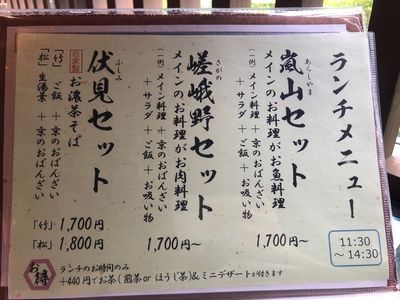 ランチメニュー
11:30
～14:30
あらしやま
嵐山セット
メインのお料理がお魚料理
(一例) メイン料理＋京のおばんざい
＋サラダ＋ご飯＋お吸い物
1,700円～
さがの
嵯峨野セット
メインのお料理がお肉料理
(一例) メイン料理＋京のおばんざい
＋サラダ＋ご飯＋お吸い物
1,700円～
ふしみ
伏見セット
自家製
お濃茶そば
「竹」 ご飯＋京のおばんざい
「松」 生湯葉＋京のおばんざい
「竹」1,700円
「松」1,800円
お得
ランチのお時間のみ
+440円でお茶(煎茶or ほうじ茶)&ミニデザートが付きます